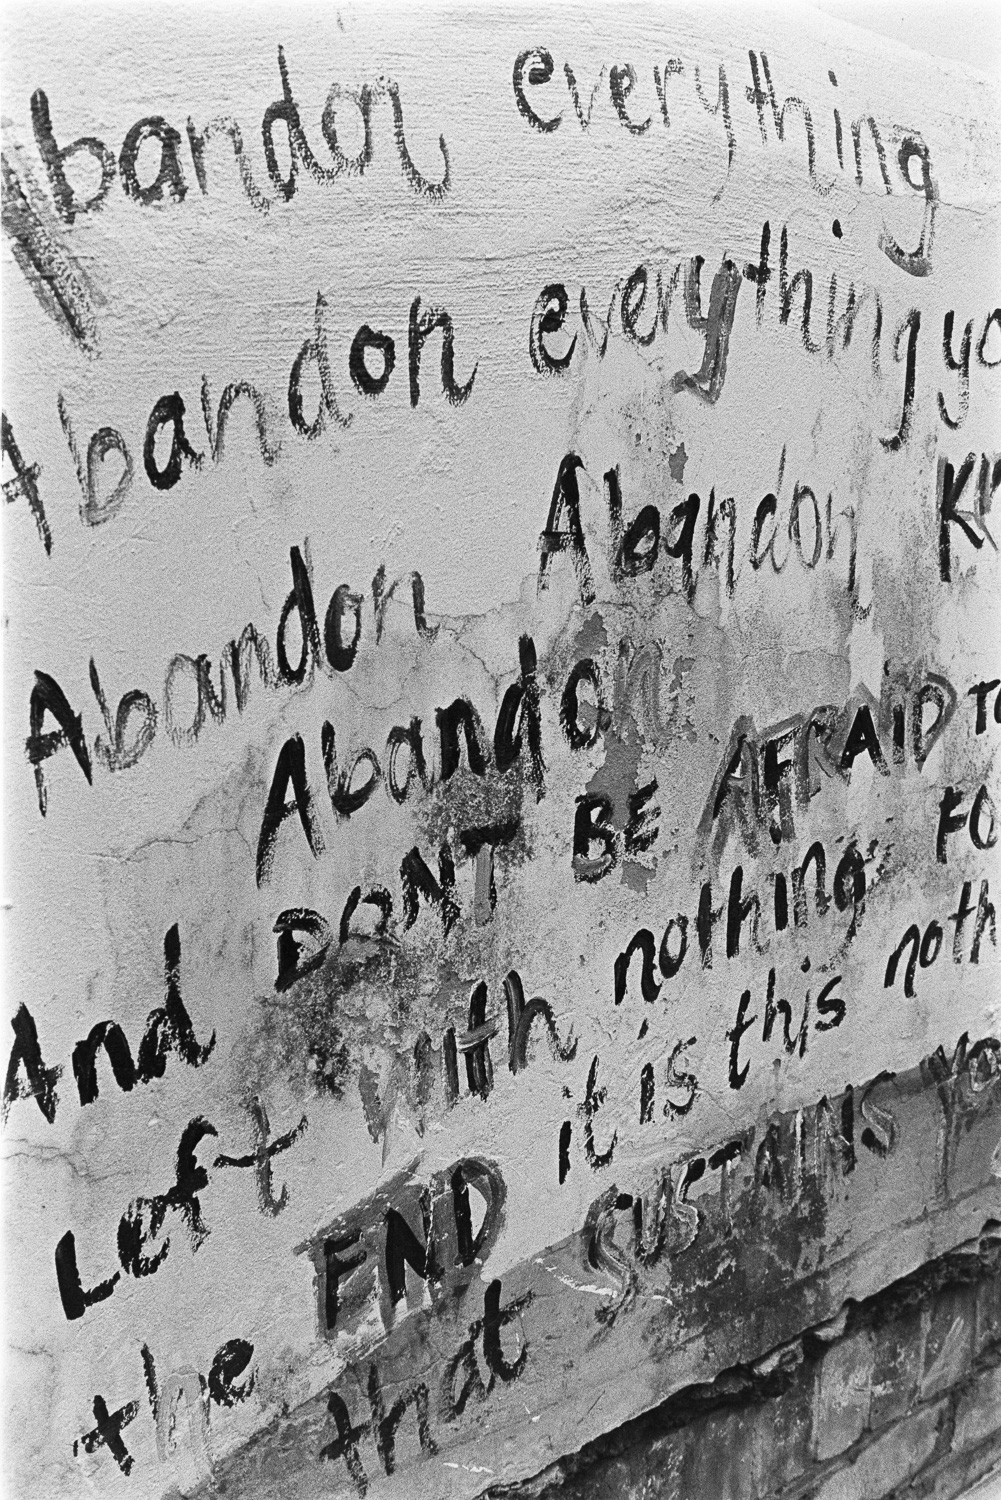 Abandon everything
Abandon everything yo
Abandon Abandon Ki
Abandon AFRAiD TO
And DONT BE
Left with nothing FO
the END it is this noth
that SUSTAINS YO